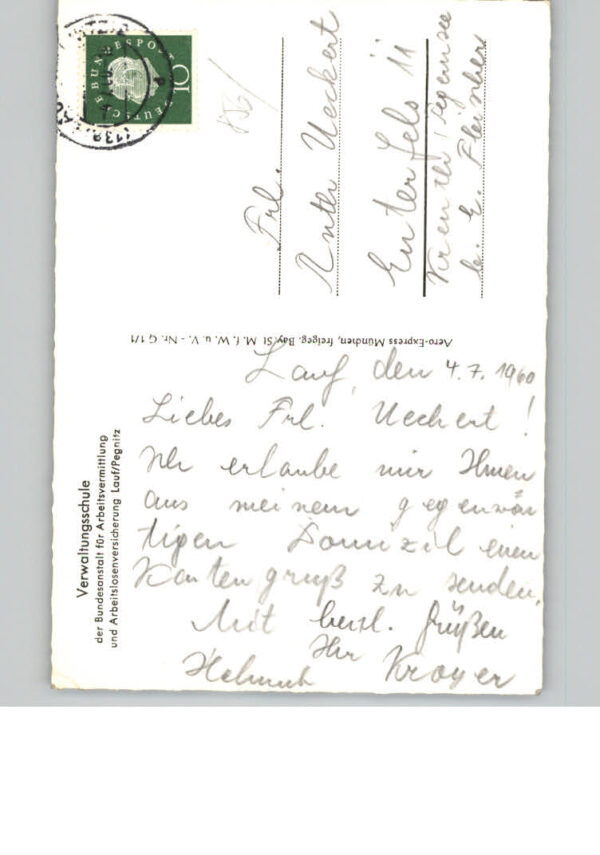 Verwaltungsschule
der Bundesanstalt für Arbeitsvermittlung
und Arbeitslosenversicherung Lauf/Pegnitz
Aero-Express München, freigeg. Bay. St. M. f. W. u. V. - Nr. G 1/1
DEUTSCHE BUNDESPOST
10
Frl.
Ueckert
Enterfels 11
Lauf, den 4.7.1960
Liebes Frl. Ueckert!
Ich erlaube mir Ihnen
aus meinem gegenwär
tigen Domizil einen
Kartengruß zu senden.
Mit herzl. Grüßen
Ihr
Helmut Kroyer